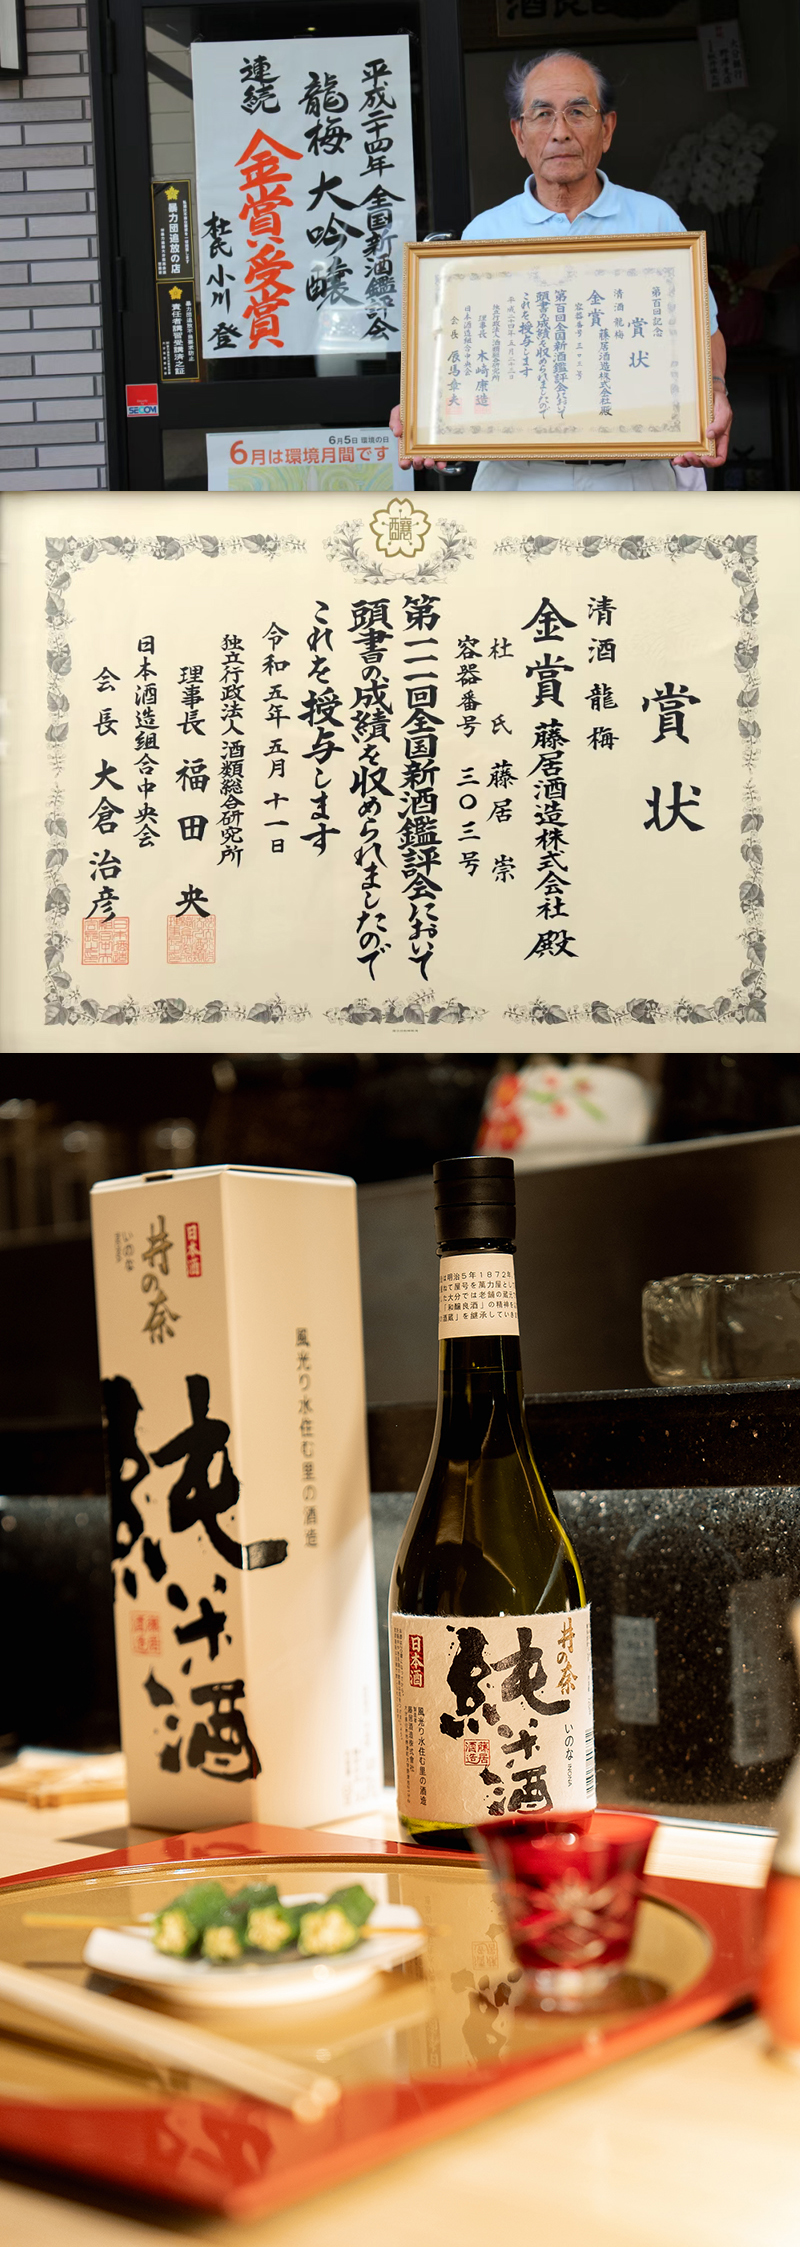 平成二十四年 全国新酒鑑評会
龍梅 大吟醸
連続 金賞受賞
杜氏 小川 登
暴力団追放の店
責任者講習受講済之証
SECOM
6月5日 環境の日
6月は環境月間です
第百回記念
賞状
清酒 龍梅
金賞 藤居酒造株式会社 殿
容器番号 三〇三号
第百回全国新酒鑑評会において
頭書の成績を収められましたので
これを授与します
平成二十四年五月二十三日
独立行政法人酒類総合研究所
理事長 木崎康造
日本酒造組合中央会
会長 辰馬章夫
醸
賞状
清酒 龍梅
金賞 藤居酒造株式会社 殿
杜氏 藤居 崇
容器番号 三〇三号
第一一一回全国新酒鑑評会において
頭書の成績を収められましたので
これを授与します
令和五年五月十一日
独立行政法人酒類総合研究所
理事長 福田 央
日本酒造組合中央会
会長 大倉治彦
日本酒
井の奈
いのな
純米酒
藤居酒造
風光り水住む里の酒造
は明治5年1872年
て屋号を萬力屋とし
た大分では老舗の蔵元
「和醸良酒」の精神を
酒蔵」を継承していき
井の奈
いのな
日本酒
純米酒
藤居酒造
風光り水住む里の酒造
藤居酒造株式会社